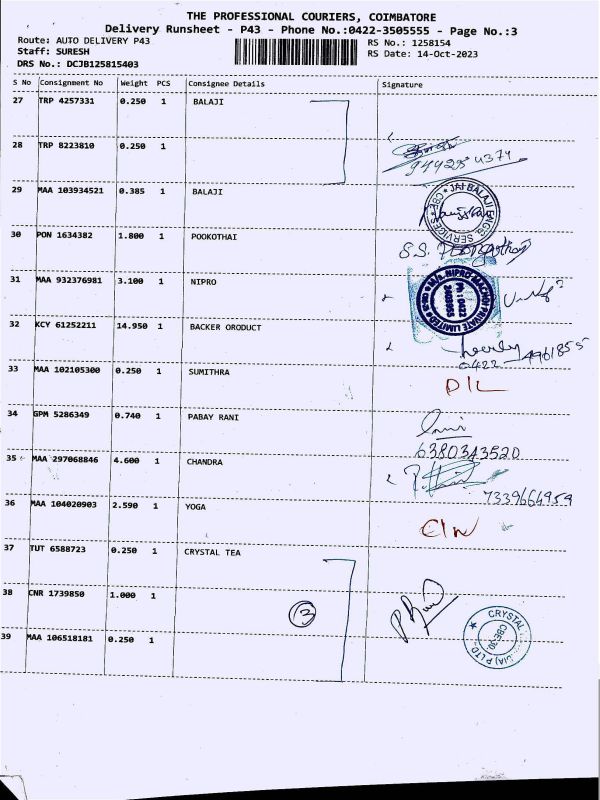 THE PROFESSIONAL COURIERS, COIMBATORE
Delivery Runsheet - P43 - Phone No.:0422-3505555 - Page No.:3
Route: AUTO DELIVERY P43 RS No.: 1258154
Staff: SURESH RS Date: 14-Oct-2023
DRS No.: DCJB125815403
S No Consignment No Weight PCS Consignee Details Signature
27 TRP 4257331 0.250 1 BALAJI
28 TRP 8223810 0.250 1
29 MAA 103934521 0.385 1 BALAJI
JAI BALAJI ENGG SERVICES CBE
30 PON 1634382 1.800 1 POOKOTHAI
S.S.
31 MAA 932376981 3.100 1 NIPRO
32 KCY 61252211 14.950 1 BACKER ORODUCT
0422 4961855
33 MAA 102105300 0.250 1 SUMITHRA
D/L
34 GPM 5286349 0.740 1 PABAY RANI
6380343520
35 MAA 297068846 4.600 1 CHANDRA
7339664959
36 MAA 104020903 2.590 1 YOGA
C/N
37 TUT 6588723 0.250 1 CRYSTAL TEA
38 CNR 1739850 1.000 1
3
39 MAA 106518181 0.250 1
CRYSTAL
CBE-30.